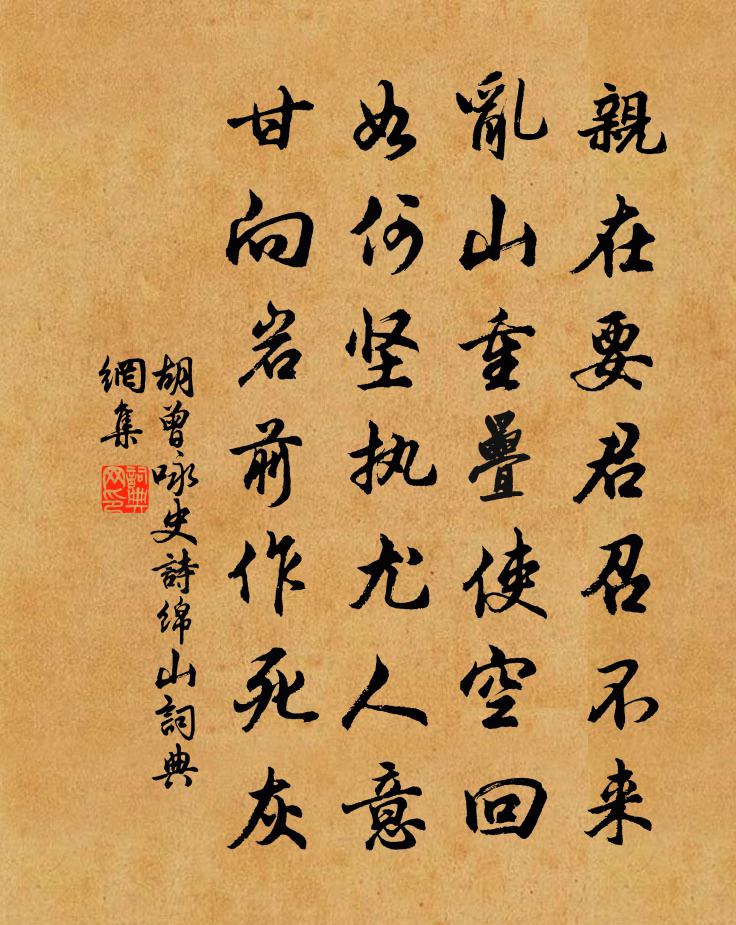 親在要君召不来
亂山重疊使空回
如何坚执尤人意
甘向岩前作死灰
胡曾咏史詩绵山詞典
網集
詞典
网印